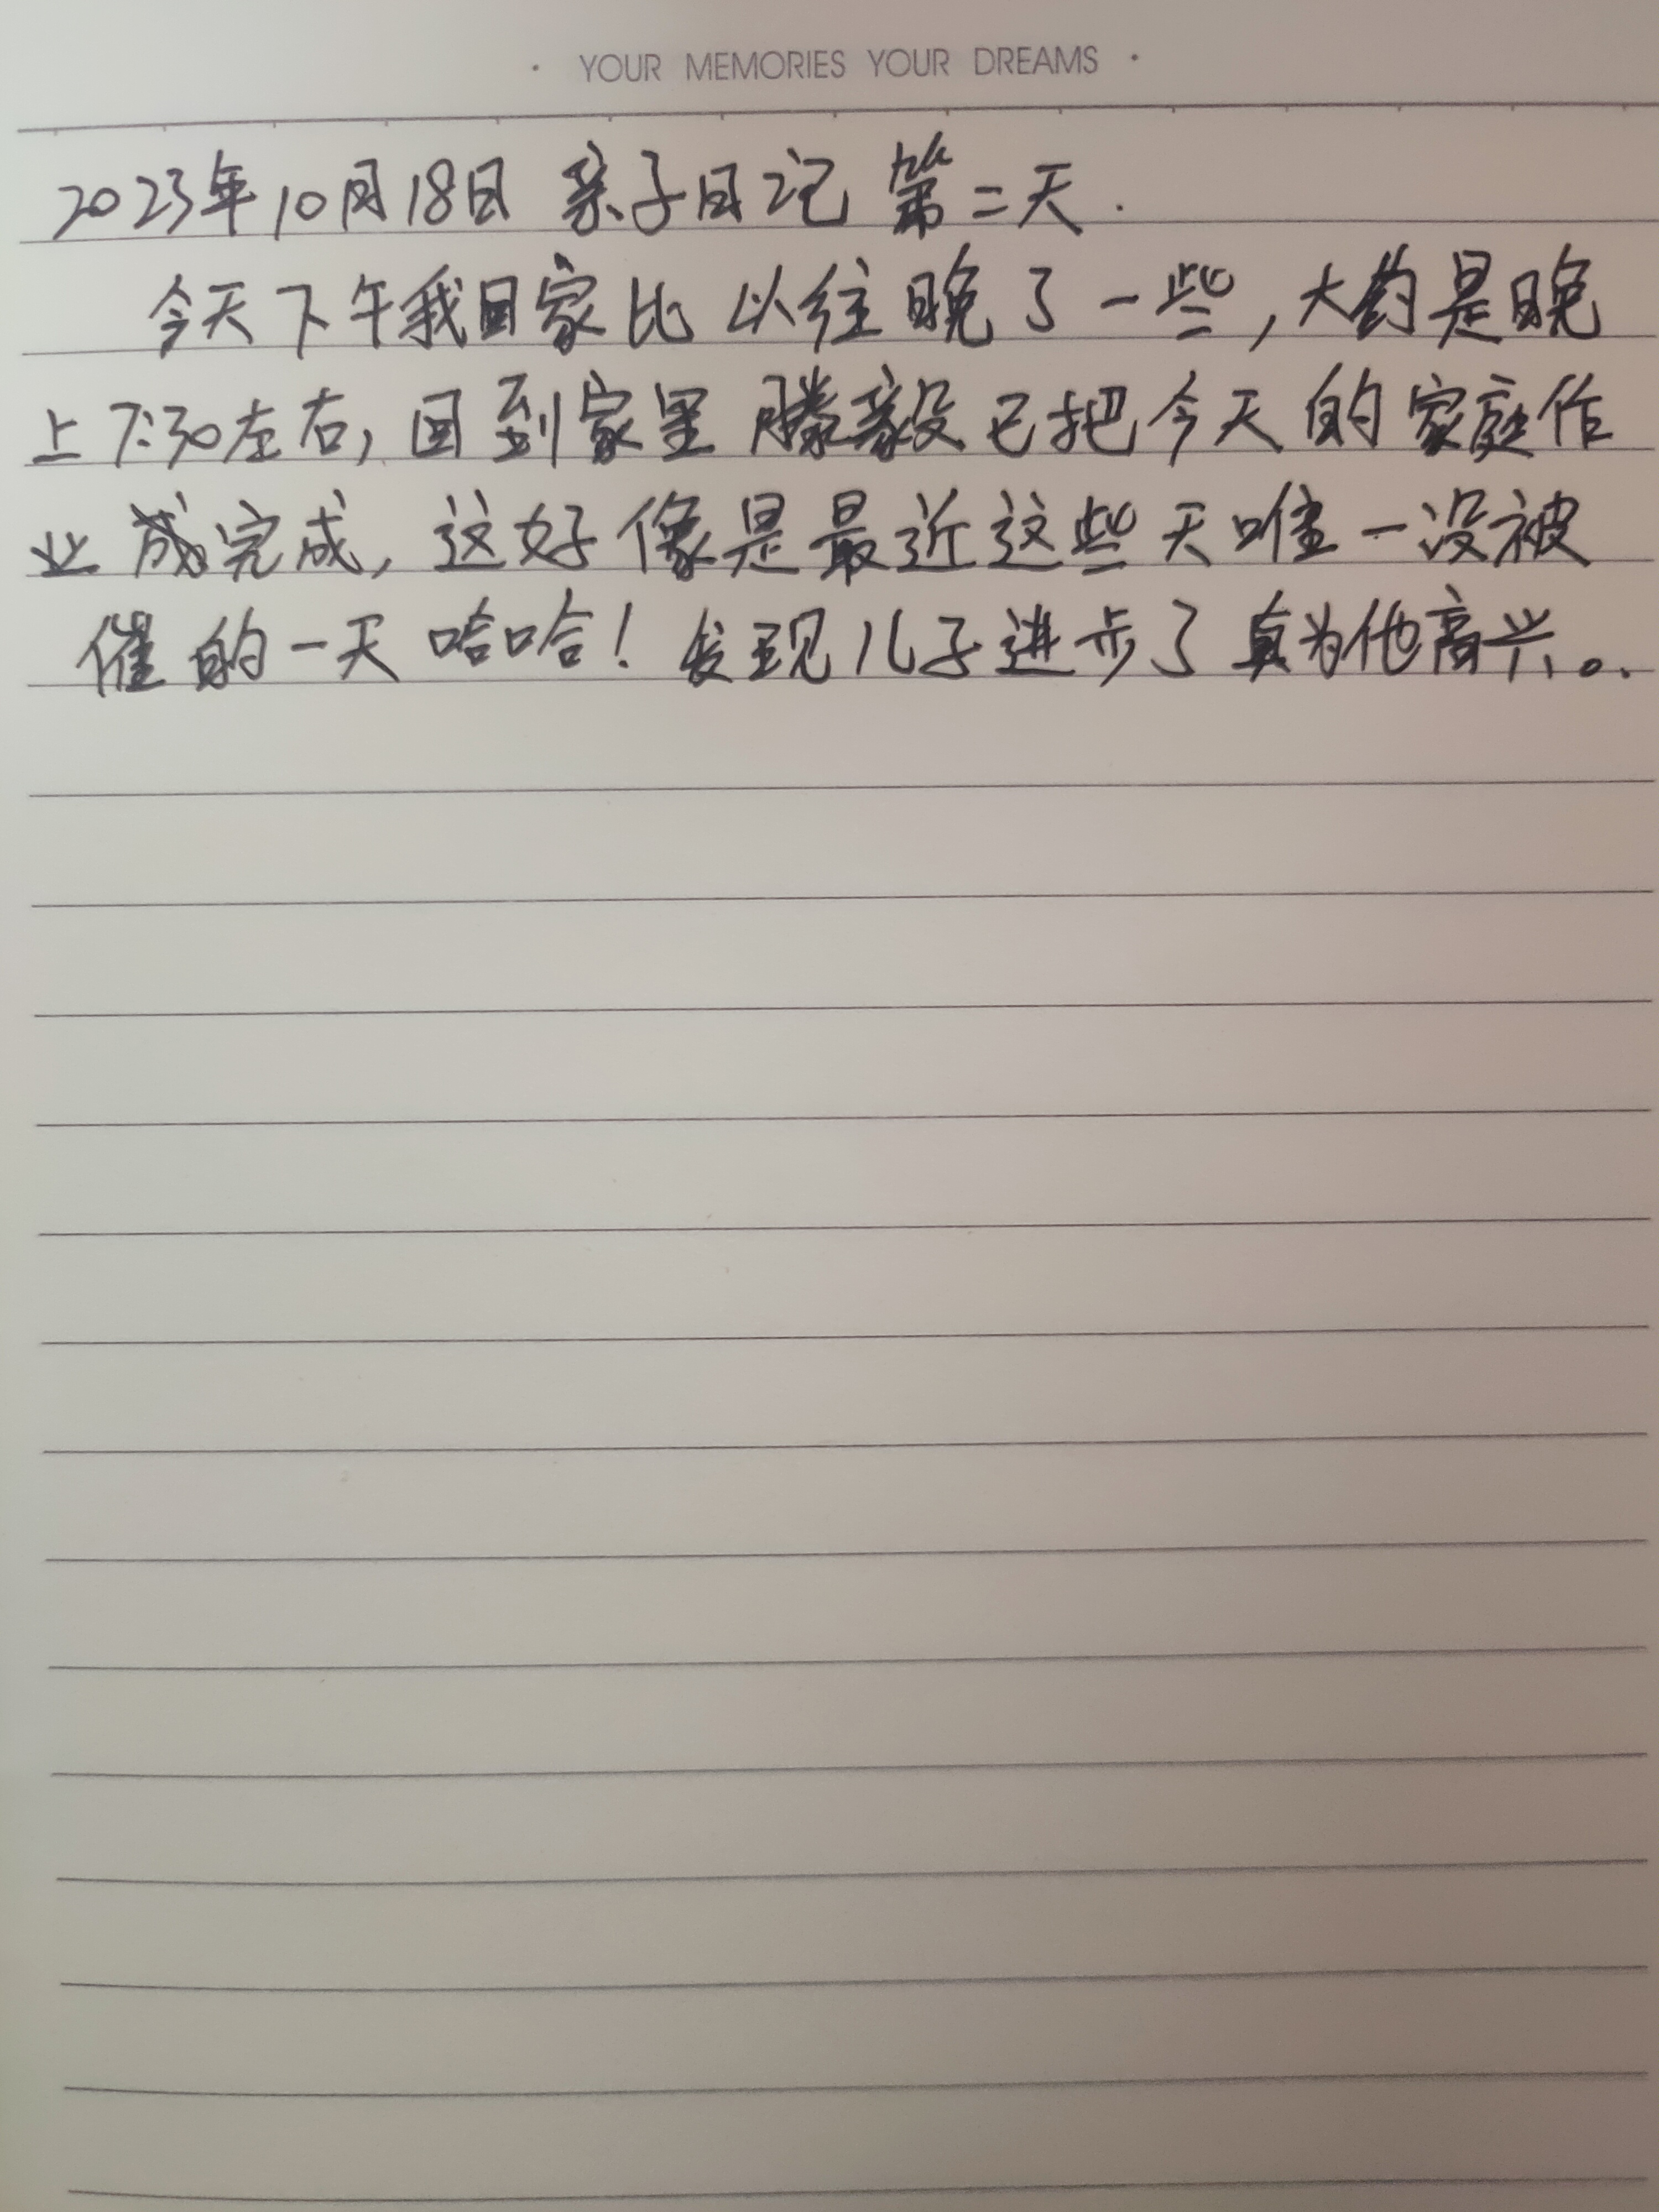 · YOUR MEMORIES YOUR DREAMS ·
2023年10月18日 亲子日记 第二天.
今天下午我回家比以往晚了一些,大约是晚
上7:30左右,回到家里滕毅已把今天的家庭作
业完成,这好像是最近这些天唯一没被
催的一天哈哈!发现儿子进步了真为他高兴。.